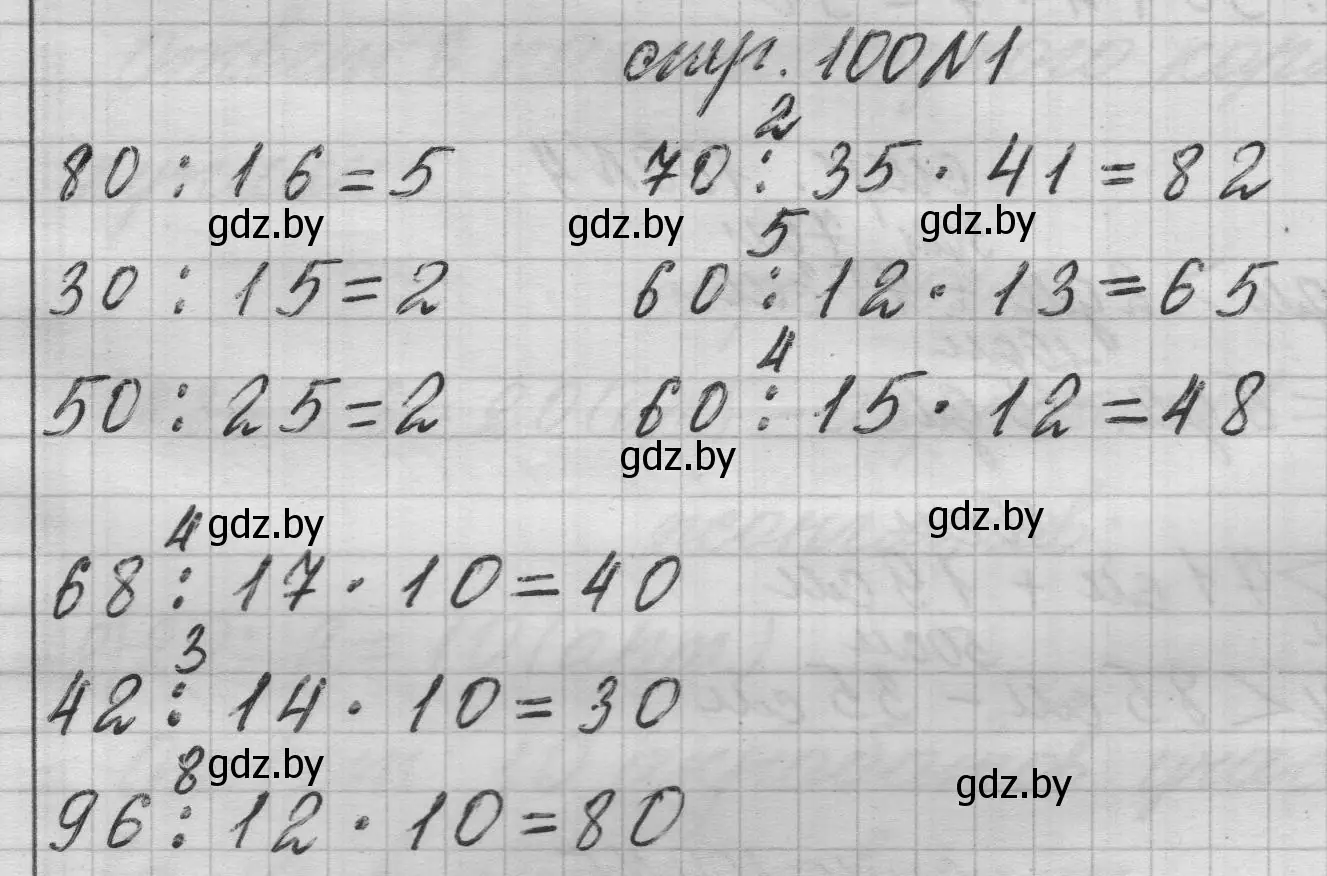 стр. 100 N1
80 : 16 = 5
30 : 15 = 2
50 : 25 = 2
2
70 : 35 · 41 = 82
5
60 : 12 · 13 = 65
4
60 : 15 · 12 = 48
4
68 : 17 · 10 = 40
3
42 : 14 · 10 = 30
8
96 : 12 · 10 = 80
gdz.by
gdz.by
gdz.by
gdz.by
gdz.by
gdz.by
gdz.by
gdz.by